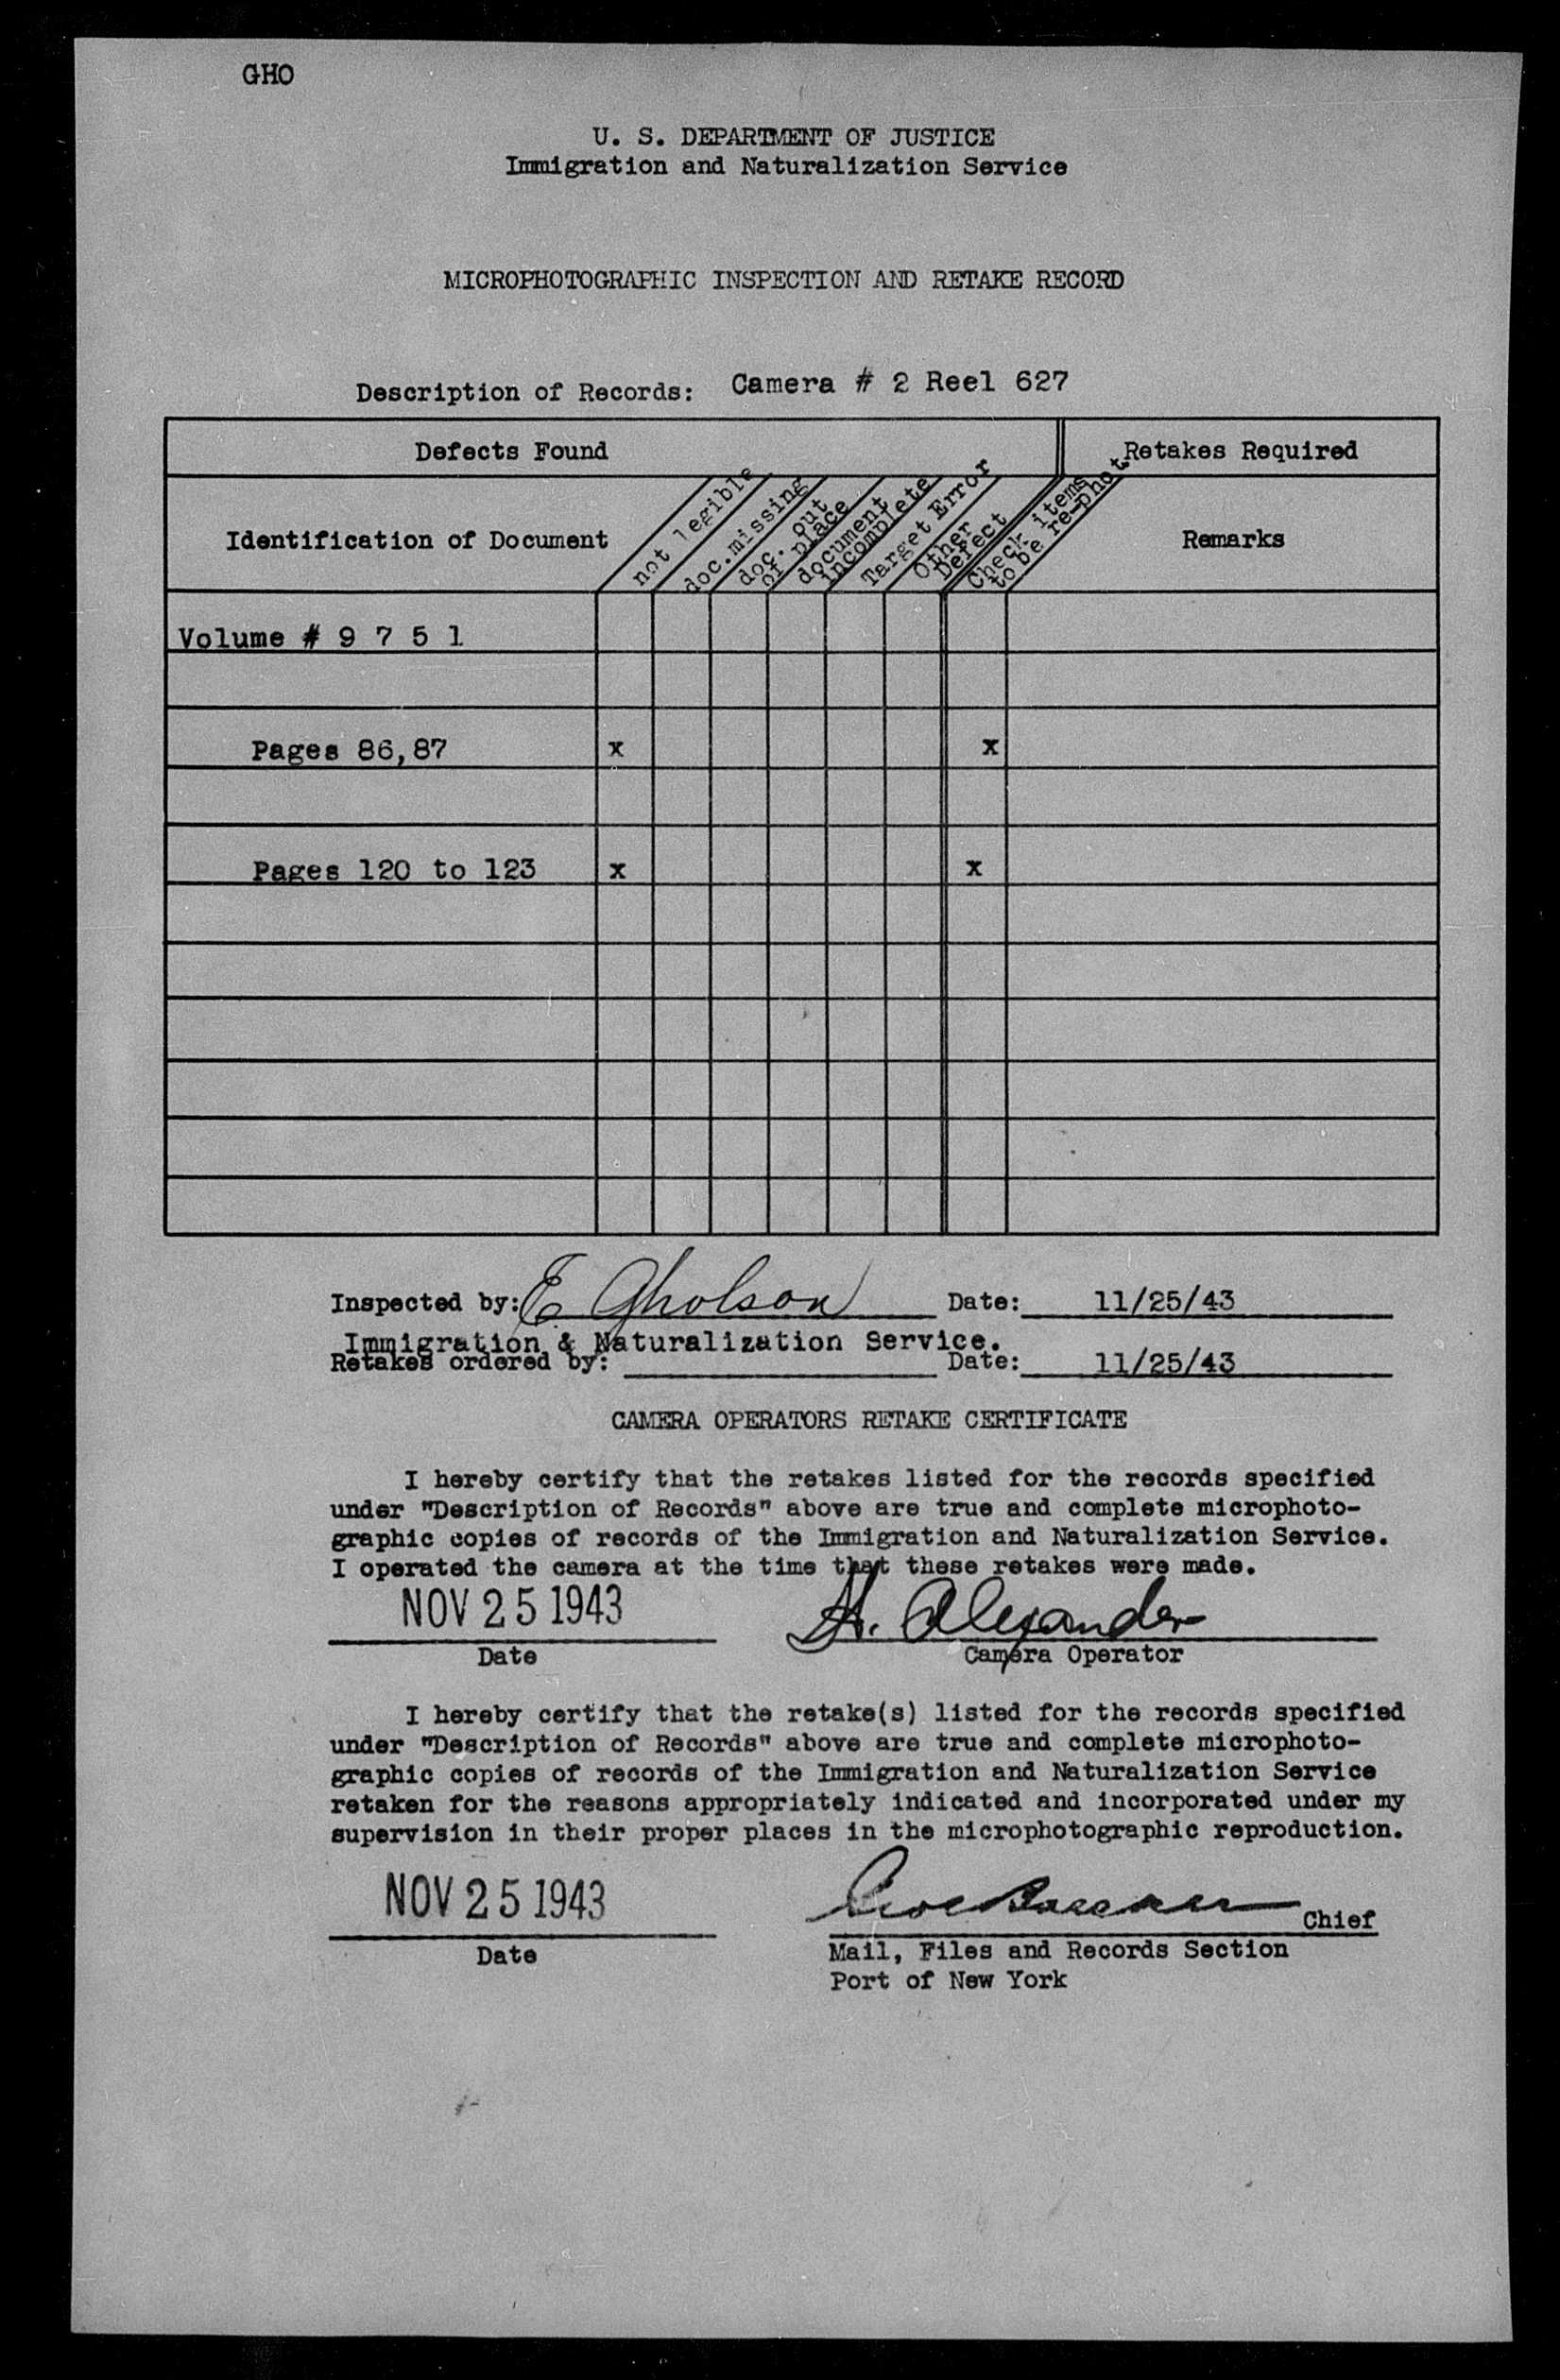 GHO
U. S. DEPARTMENT OF JUSTICE
Immigration and Naturalization Service
MICROPHOTOGRAPHIC INSPECTION AND RETAKE RECORD
Description of Records: Camera # 2 Reel 627
Defects Found
Retakes Required
Identification of Document
not legible
doc.missing
doc. out
of place
document
incomplete
Target Error
Other
Defect
Check items
to be re-phot.
Remarks
Volume # 9 7 5 1
Pages 86,87 x x
Pages 120 to 123 x x
Inspected by: E Gholson Date: 11/25/43
Immigration & Naturalization Service.
Retakes ordered by: Date: 11/25/43
CAMERA OPERATORS RETAKE CERTIFICATE
I hereby certify that the retakes listed for the records specified
under "Description of Records" above are true and complete microphoto-
graphic copies of records of the Immigration and Naturalization Service.
I operated the camera at the time that these retakes were made.
NOV 25 1943 H. Alexander
Date Camera Operator
I hereby certify that the retake(s) listed for the records specified
under "Description of Records" above are true and complete microphoto-
graphic copies of records of the Immigration and Naturalization Service
retaken for the reasons appropriately indicated and incorporated under my
supervision in their proper places in the microphotographic reproduction.
NOV 25 1943 Chief
Date Mail, Files and Records Section
Port of New York